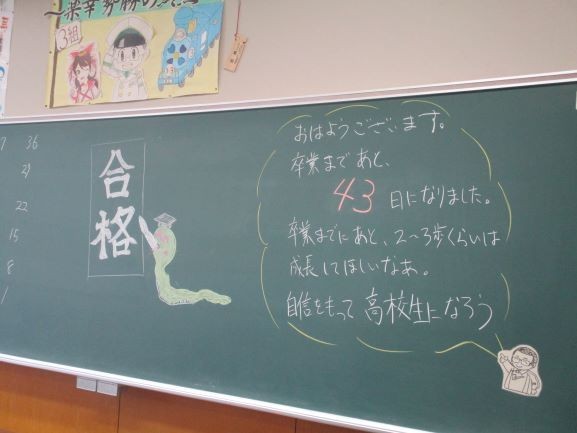 3組
7 36
21
22
15
8
1
合格
おはようございます。
卒業まであと、
43 日になりました。
卒業までにあと、2〜3歩くらいは
成長してほしいなあ。
自信をもって 高校生になろう